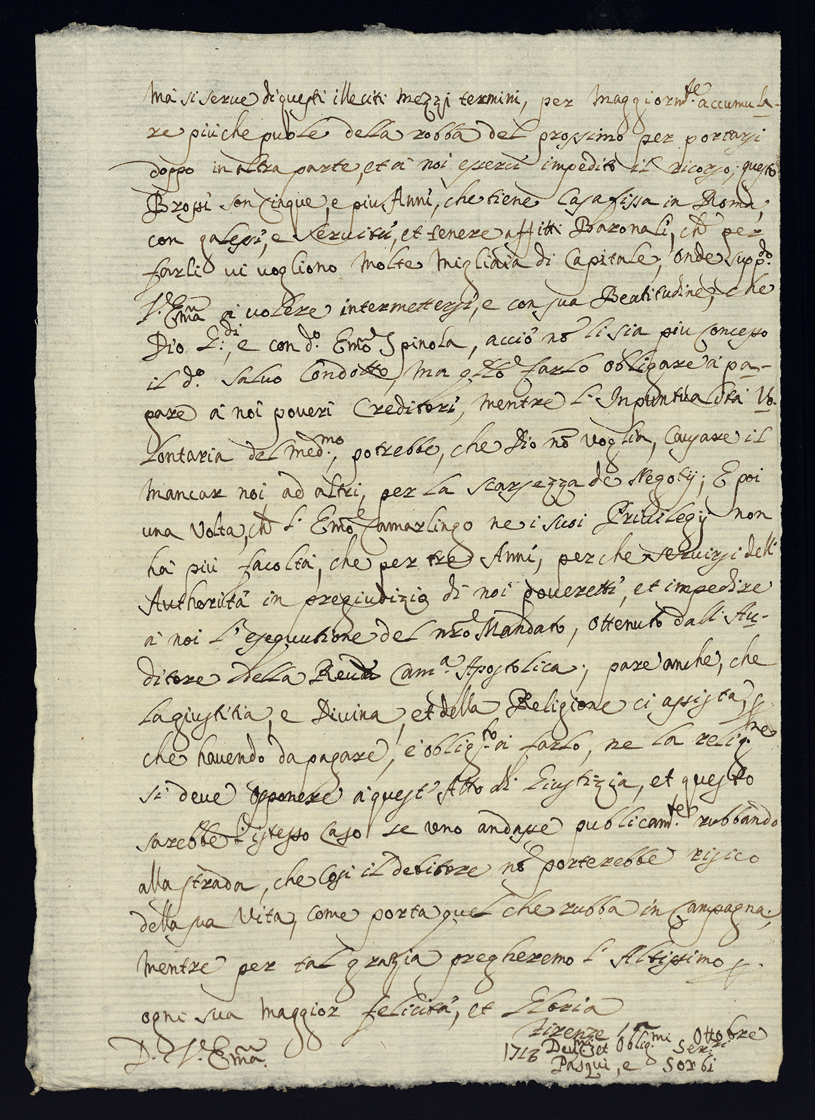 Mà si serve di questi illeciti mezzi termini, per maggiorm.te accumula-
re più che puole della robba del prossimo per portarsi
doppo in altra parte, et à noi esserci impedito il ricorso, questo
Brossi son cinque, e più Anni, che tiene Casa fissa in Roma,
con galessi, e servitù, et tenere affitti Baronali, ch' per
farli vi vogliono molte migliaia di Capitale, onde supp.do
V.ra Em.a à volere intermettersi, e con sua Beatitudine, che
Dio G.di, e con d.o Em.o Spinola, acciò nō li sia più concesso
il d.o Salvo Condotto, ma q.sto farlo obligare à pa-
gare à noi poveri Creditori, mentre l'Inpuntualità Vo-
lontaria del med.mo, potrebbe, che Dio nō voglia, causare il
mancar noi ad altri, per la scarsezza de Negotij; E poi
una volta, ch' l'Em.o Camarlingo ne i suoi Privilegij non
hà più facoltà, che per tre Anni, perche servirsi dell'
Authorità in pregiudizio di noi poveretti, et impedire
à noi l'essequutione del nr̄o Mandato, ottenuto dall'Au-
ditore della Reu.da Cam.a Apostolica; pare anche, che
la giustitia, e Divina, et della Religione ci assista, p
che havendo da pagare, è oblig.to à farlo, ne la relig.ne
si deve opponere à quest'Atto di Giustizia, et questo
sarebbe l'istesso caso se uno andasse publicam.te rubbando
alla strada, che Così il debitore nō porterebbe risico
della sua Vita, come porta quel che rubba in Campagna;
mentre per tal grazia pregheremo l'Altissimo p
ogni sua maggior felicità, et Gloria
D. V.ra Em.a
Firenze Ottobre
1713 Deu.mi et Oblig.mi Ser.ri
Pasqui, e Sorbi